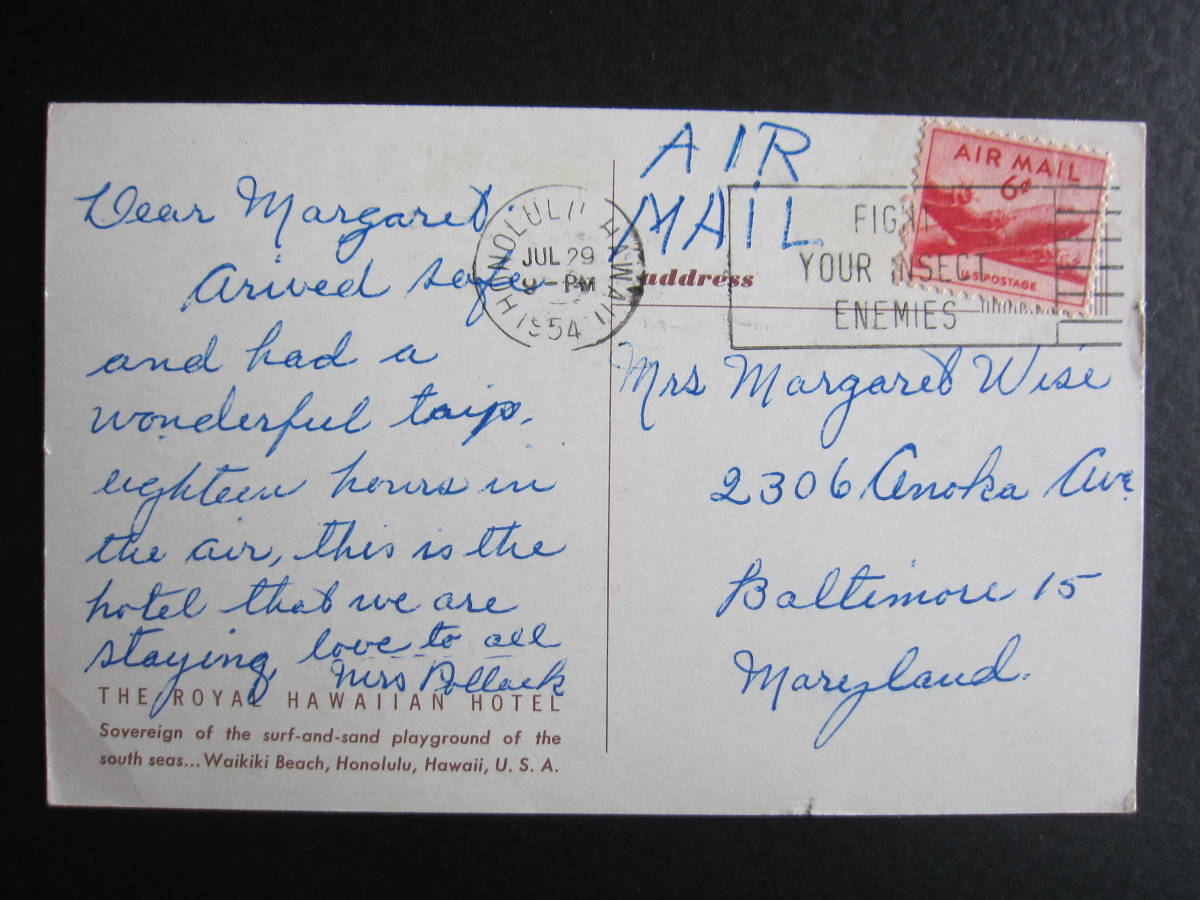 Dear Margaret.
Arived safe
and had a
wonderful trip,
eighteen hours in
the air, this is the
hotel that we are
staying, love to all
Mrs Pollack
THE ROYAL HAWAIIAN HOTEL
Sovereign of the surf-and-sand playground of the
south seas... Waikiki Beach, Honolulu, Hawaii, U. S. A.
HONOLULU HAWAII
JUL 29
PM
1954
AIR
MAIL
FIGHT
YOUR INSECT
ENEMIES
AIR MAIL
6¢
U.S. POSTAGE
address
Mrs Margaret Wise
2306 Anoka Ave
Baltimore 15
Maryland.